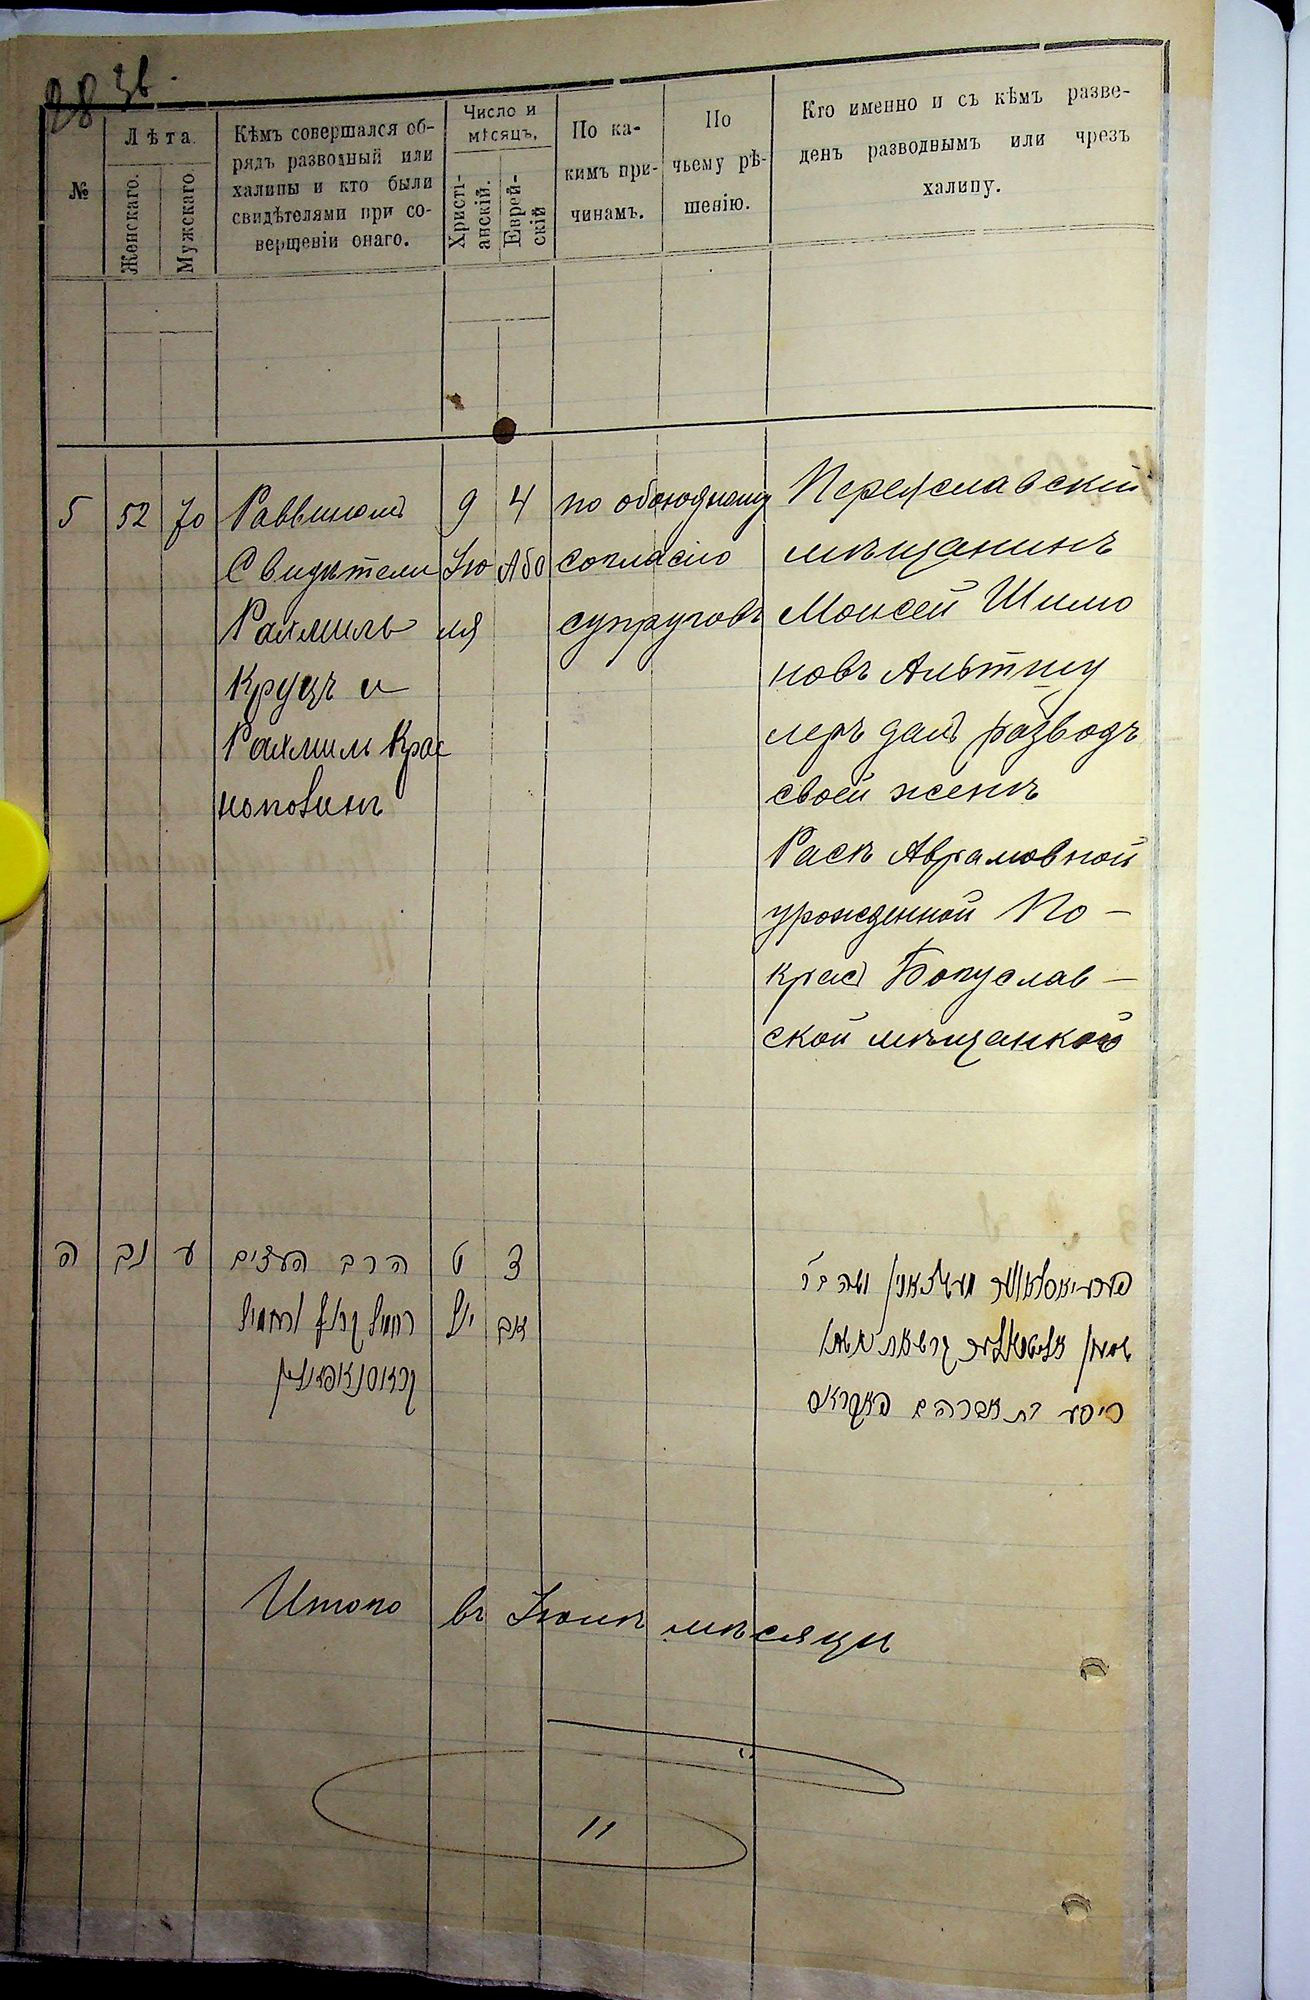 28 36.
№
Лѣта.
Женскаго.
Мужскаго.
Кѣмъ совершался об-
рядъ разводный или
халипы и кто были
свидѣтелями при со-
вершеніи онаго.
Число и
мѣсяцъ.
Христі-
анскій.
Еврей-
скій
По ка-
кимъ при-
чинамъ.
По
чьему рѣ-
шенію.
Кто именно и съ кѣмъ разве-
денъ разводнымъ или чрезъ
халипу.
5 52 70
Раввиномъ
Свидѣтели
Рахмиль
Круцъ и
Рахмиль Крас
нополинъ
9 4
Ію Або
ля
по обоюдному
согласію
супруговъ
Переяславскій
мѣщанинъ
Моисей Шимо
новъ Альтшу
леръ далъ разводъ
своей женѣ
Расѣ Аврамовной
урожденной По-
крас Богуслав-
ской мѣщанкой
ה נב ע
הרב העצים
רחמיל קרוץ ורחמיל
ט ד
יול אב
משה ב״ר
שמעון אלטשולער גרשאת אשתו
רייסע בת אברהם פאקראס
Итого въ Іюлѣ мѣсяцѣ
11